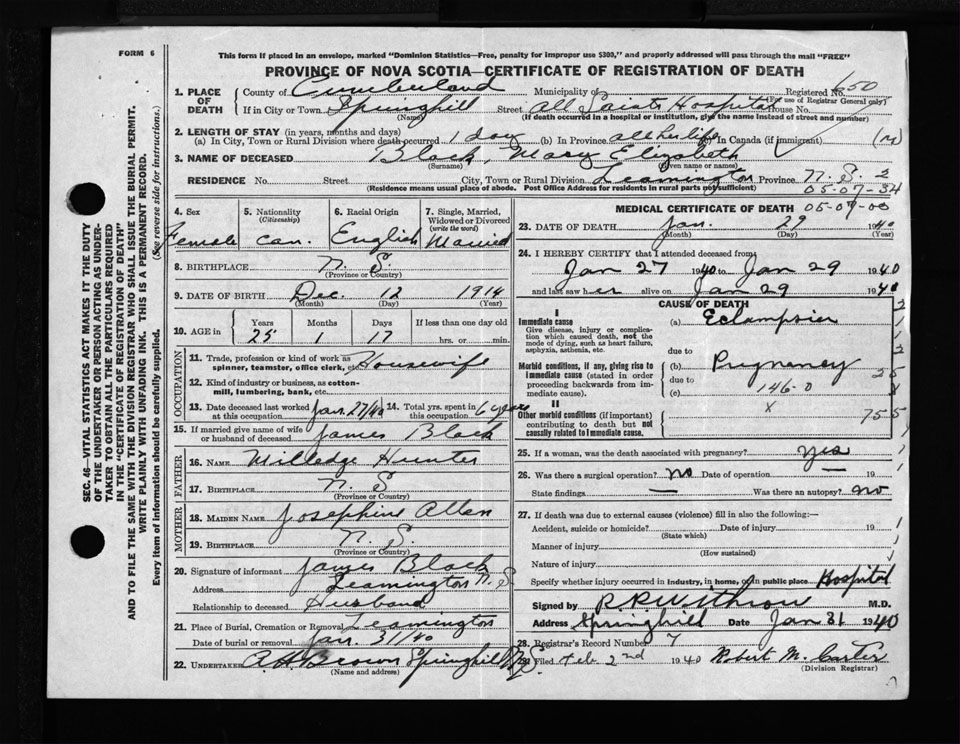 FORM 6
This form if placed in an envelope, marked "Dominion Statistics—Free, penalty for improper use $300," and properly addressed will pass through the mail "FREE"
PROVINCE OF NOVA SCOTIA—CERTIFICATE OF REGISTRATION OF DEATH
1. PLACE OF DEATH
County of Cumberland Municipality of Registered No. 50
(For use of Registrar General only)
If in City or Town Springhill Street All Saints Hospital House No.
(Name) (If death occurred in a hospital or institution, give the name instead of street and number)
2. LENGTH OF STAY (in years, months and days)
(a) In City, Town or Rural Division where death occurred 1 day (b) In Province all her life (c) In Canada (if immigrant) (M)
3. NAME OF DECEASED Black, Mary Elizabeth
(Surname) (Given name or names)
RESIDENCE No. Street City, Town or Rural Division Leamington Province N. S. 2
(Residence means usual place of abode. Post Office Address for residents in rural parts not sufficient) 05-07-34
4. Sex Female
5. Nationality (Citizenship) Can.
6. Racial Origin English
7. Single, Married, Widowed or Divorced (write the word) Married
8. BIRTHPLACE N. S.
(Province or Country)
9. DATE OF BIRTH Dec. 12 1914
(Month) (Day) (Year)
10. AGE in Years Months Days If less than one day old
25 1 17 hrs. or min.
OCCUPATION
11. Trade, profession or kind of work as spinner, teamster, office clerk, etc. Housewife
12. Kind of industry or business, as cotton-mill, lumbering, bank, etc.
13. Date deceased last worked at this occupation Jan. 27/40 14. Total yrs. spent in this occupation 6 years
15. If married give name of wife or husband of deceased James Black
FATHER
16. Name Milledge Hunter
17. Birthplace N. S.
(Province or Country)
MOTHER
18. Maiden Name Josephine Allen
19. Birthplace N. S.
(Province or Country)
20. Signature of informant James Black
Address Leamington N. S.
Relationship to deceased Husband
21. Place of Burial, Cremation or Removal Leamington
Date of burial or removal Jan. 31/40
22. Undertaker A H Brown Springhill N.S.
(Name and address)
MEDICAL CERTIFICATE OF DEATH 05-09-00
23. DATE OF DEATH Jan. 29 1940
(Month) (Day) (Year)
24. I HEREBY CERTIFY that I attended deceased from
Jan 27 1940 to Jan 29 1940
and last saw her alive on Jan 29 1940
CAUSE OF DEATH
I
Immediate cause
Give disease, injury or complication which caused death, not the mode of dying, such as heart failure, asphyxia, asthenia, etc.
(a) Eclampsia
due to
Morbid conditions, if any, giving rise to immediate cause (stated in order proceeding backwards from immediate cause).
(b) Pregnancy
due to
(c) 146-0
X
II
Other morbid conditions (if important) contributing to death but not causally related to immediate cause.
755
25. If a woman, was the death associated with pregnancy? yes
26. Was there a surgical operation? no Date of operation — 19
State findings — Was there an autopsy? no
27. If death was due to external causes (violence) fill in also the following:—
Accident, suicide or homicide? Date of injury 19
(State which)
Manner of injury
(How sustained)
Nature of injury
Specify whether injury occurred in industry, in home, or in public place Hospital
Signed by R.R. Withrow M.D.
Address Springhill Date Jan 31 1940
28. Registrar's Record Number 7
29. Filed Feb 2nd 1940 Robert M. Carter
(Division Registrar)
SEC. 46—VITAL STATISTICS ACT MAKES IT THE DUTY
OF THE UNDERTAKER OR PERSON ACTING AS UNDER-
TAKER TO OBTAIN ALL THE PARTICULARS REQUIRED
IN THE "CERTIFICATE OF REGISTRATION OF DEATH"
AND TO FILE THE SAME WITH THE DIVISION REGISTRAR WHO SHALL ISSUE THE BURIAL PERMIT.
WRITE PLAINLY WITH UNFADING INK. THIS IS A PERMANENT RECORD.
Every item of information should be carefully supplied. (See reverse side for instructions.)